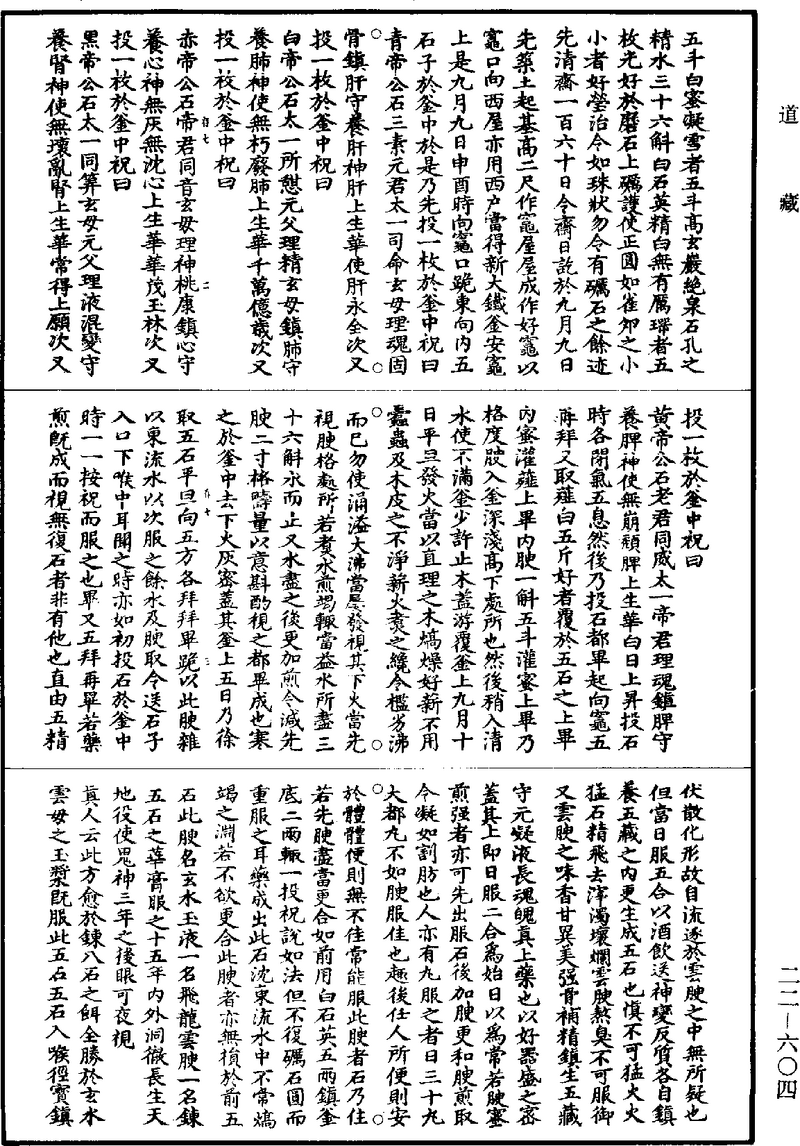 道藏
五斗白蜜凝雪者五斗高玄巖絶泉石孔之
精水三十六斛白石英精白無有厲璅者五
枚光好於磨石上礪護使正圓如雀卵之小
小者好瑩治令如珠狀勿令有礪石之餘迹
先清齋一百六十日令齋日訖於九月九日
先築土起基高二尺作竈屋屋成作好竈以
竈口向西屋亦用西户當得新大鐵釜安竈
上是九月九日申酉時向竈口跪東向内五
石子於釜中於是乃先投一枚於釜中祝曰
青帝公石三素元君太一司命玄母理魂固
骨鎮肝守養肝神肝上生華使肝永全次又
投一枚於釜中祝曰
白帝公石太一所憇元父理精玄母鎮肺守
養肺神使無朽廢肺上生華千萬億歲次又
投一枚於釜中祝曰
赤帝公石帝君同音玄母理神桃康鎮心守
養心神無灰無沈心上生華華茂玉林次又
投一枚於釜中祝曰
黑帝公石太一同筭玄母元父理液混變守
養腎神使無壞亂腎上生華常得上願次又
投一枚於釜中祝曰
黄帝公石老君同威太一帝君理魂鎮脾守
養脾神使無崩頽脾上生華白日上昇投石
時各閉氣五息然後乃投石都畢起向竈五
再拜又取薤白五斤好者覆於五石之上畢
内蜜灌薤上畢内腴一斛五斗灌蜜上畢乃
格度腴入釜深淺高下處所也然後稍入清
水使不滿釜少許止木蓋游覆釜上九月十
日平旦發火當以直理之木熇燥好薪不用
蠹蟲及木皮之不淨薪火煑之纔令檻劣沸
而已勿使涌溢大沸當屡發視其下火當先
視腴格處所若煑水煎竭輙當益水所盡三
十六斛水而止又水盡之後更加煎令減先
腴二寸格疇量以意斟酌視之都畢成也寒
之於釜中去下火灰密蓋其釜上五日乃徐
取五石平旦向五方各拜拜畢跪以此腴雜
以東流水以次服之餘水及腴取令送石子
入口下喉中耳開之時亦如初投石於釜中
時一一按祝而服之也畢又五拜再畢若藥
煎既成而視無復石者非有他也直由五精
伏散化形故自流逐於雲腴之中無所疑也
但當日服五合以酒飲送神變反質各自鎮
養五藏之内更生成五石也慎不可猛火火
猛石精飛去滓濁壞爛雲腴熬臭不可服御
又雲腴之味香甘異美强骨補精鎮生五藏
守元凝液長魂魄真上藥也以好噐盛之密
蓋其上即日服二合爲始日以爲常若腴蹇
煎强者亦可先出服石後加腴更和腴煎取
令凝如割肪也人亦有丸服之者日三十丸
大都丸不如腴服佳也趣後任人所便則安
於體體便則無不佳常能服此腴者石乃住
若先腴盡當更合如前用白石英五兩鎮釜
底二兩輙一投祝説如法但不復礪石圓而
重服之耳藥成出此石沈東流水中不常熇
竭之淵若不欲更合此腴者亦無損於前五
石此腴名玄水玉液一名飛龍雲腴一名鍊
五石之華膏服之十五年内外洞徹長生天
地役使鬼神三年之後眼可夜視
真人云此方愈於鍊八石之餌全勝於玄水
雲母之玉漿既服此五石五石入喉徑寳鎮
二二—六〇四